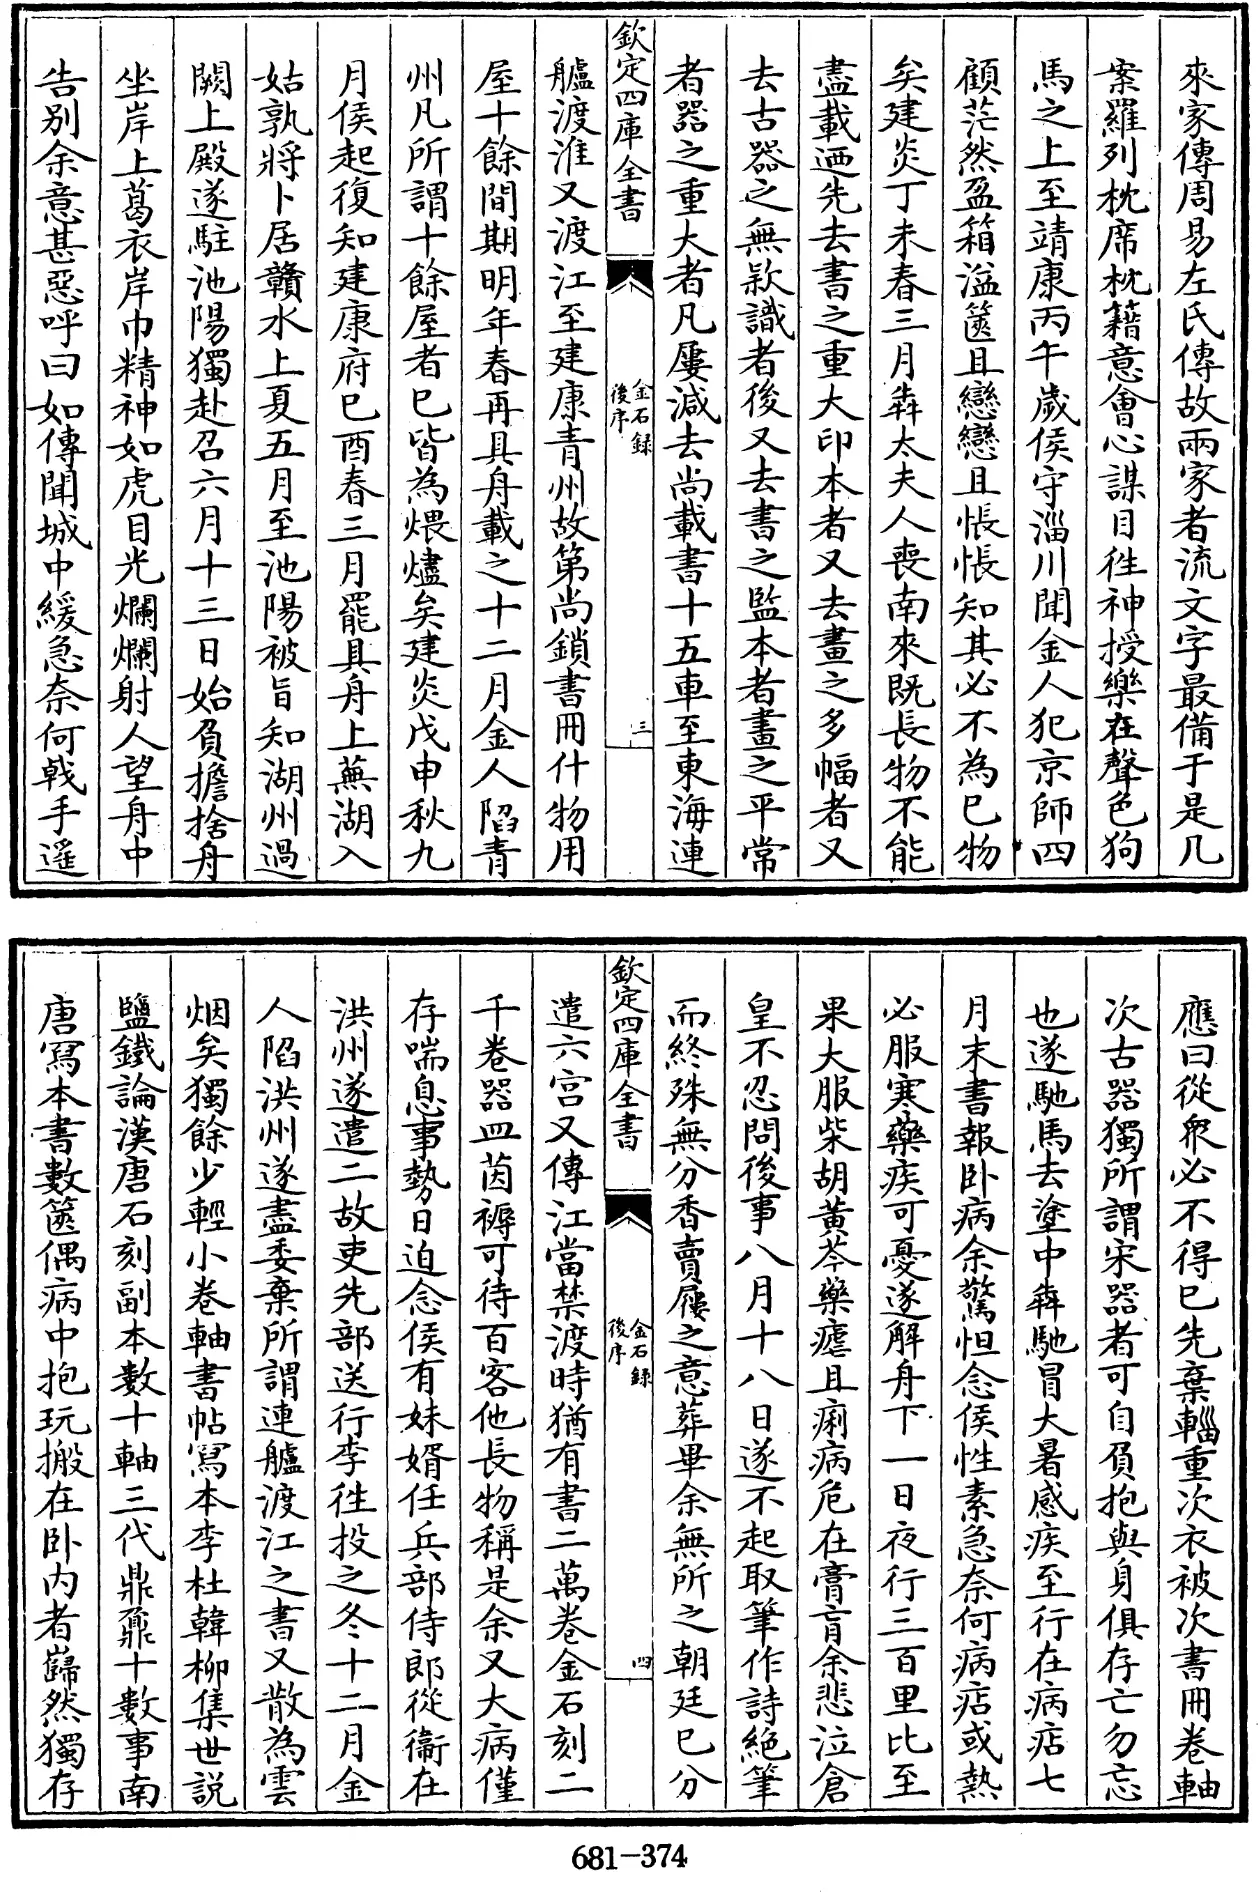 來家傳周易左氏傳故兩家者流文字最備于是几
案羅列枕席枕籍意會心謀目徃神授樂在聲色狗
馬之上至靖康丙午歲侯守淄川聞金人犯京師四
顧茫然盈箱溢篋且戀戀且悵悵知其必不為已物
矣建炎丁未春三月犇太夫人喪南來既長物不能
盡載廼先去書之重大印本者又去畫之多幅者又
去古器之無欵識者後又去書之監本者畫之平常
者器之重大者凡屢減去尚載書十五車至東海連
欽定四庫全書
金石録
後序
三
艫渡淮又渡江至建康青州故第尚鎖書冊什物用
屋十餘間期明年春再具舟載之十二月金人陷青
州凡所謂十餘屋者已皆為煨燼矣建炎戊申秋九
月侯起復知建康府已酉春三月罷具舟上蕪湖入
姑孰將卜居贛水上夏五月至池陽被旨知湖州過
闕上殿遂駐池陽獨赴召六月十三日始負擔捨舟
坐岸上葛衣岸巾精神如虎目光爛爛射人望舟中
告别余意甚惡呼曰如傳聞城中緩急奈何戟手遥
應曰從衆必不得已先棄輜重次衣被次書冊卷軸
次古器獨所謂宋器者可自負抱與身俱存亡勿忘
也遂馳馬去塗中犇馳冒大暑感疾至行在病痁七
月末書報卧病余驚怛念侯性素急奈何病痁或熱
必服寒藥疾可憂遂解舟下一日夜行三百里比至
果大服柴胡黃芩藥瘧且痢病危在膏肓余悲泣倉
皇不忍問後事八月十八日遂不起取筆作詩絶筆
而終殊無分香賣屨之意葬畢余無所之朝廷已分
欽定四庫全書
金石録
後序
四
遣六宫又傳江當禁渡時猶有書二萬卷金石刻二
千卷器皿茵褥可待百客他長物稱是余又大病僅
存喘息事勢日迫念侯有妹婿任兵部侍郎從衞在
洪州遂遣二故吏先部送行李徃投之冬十二月金
人陷洪州遂盡委棄所謂連艫渡江之書又散為雲
烟矣獨餘少輕小卷軸書帖寫本李杜韓柳集世説
鹽鐵論漢唐石刻副本數十軸三代鼎鼐十數事南
唐寫本書數篋偶病中抱玩搬在卧内者巋然獨存
681-374